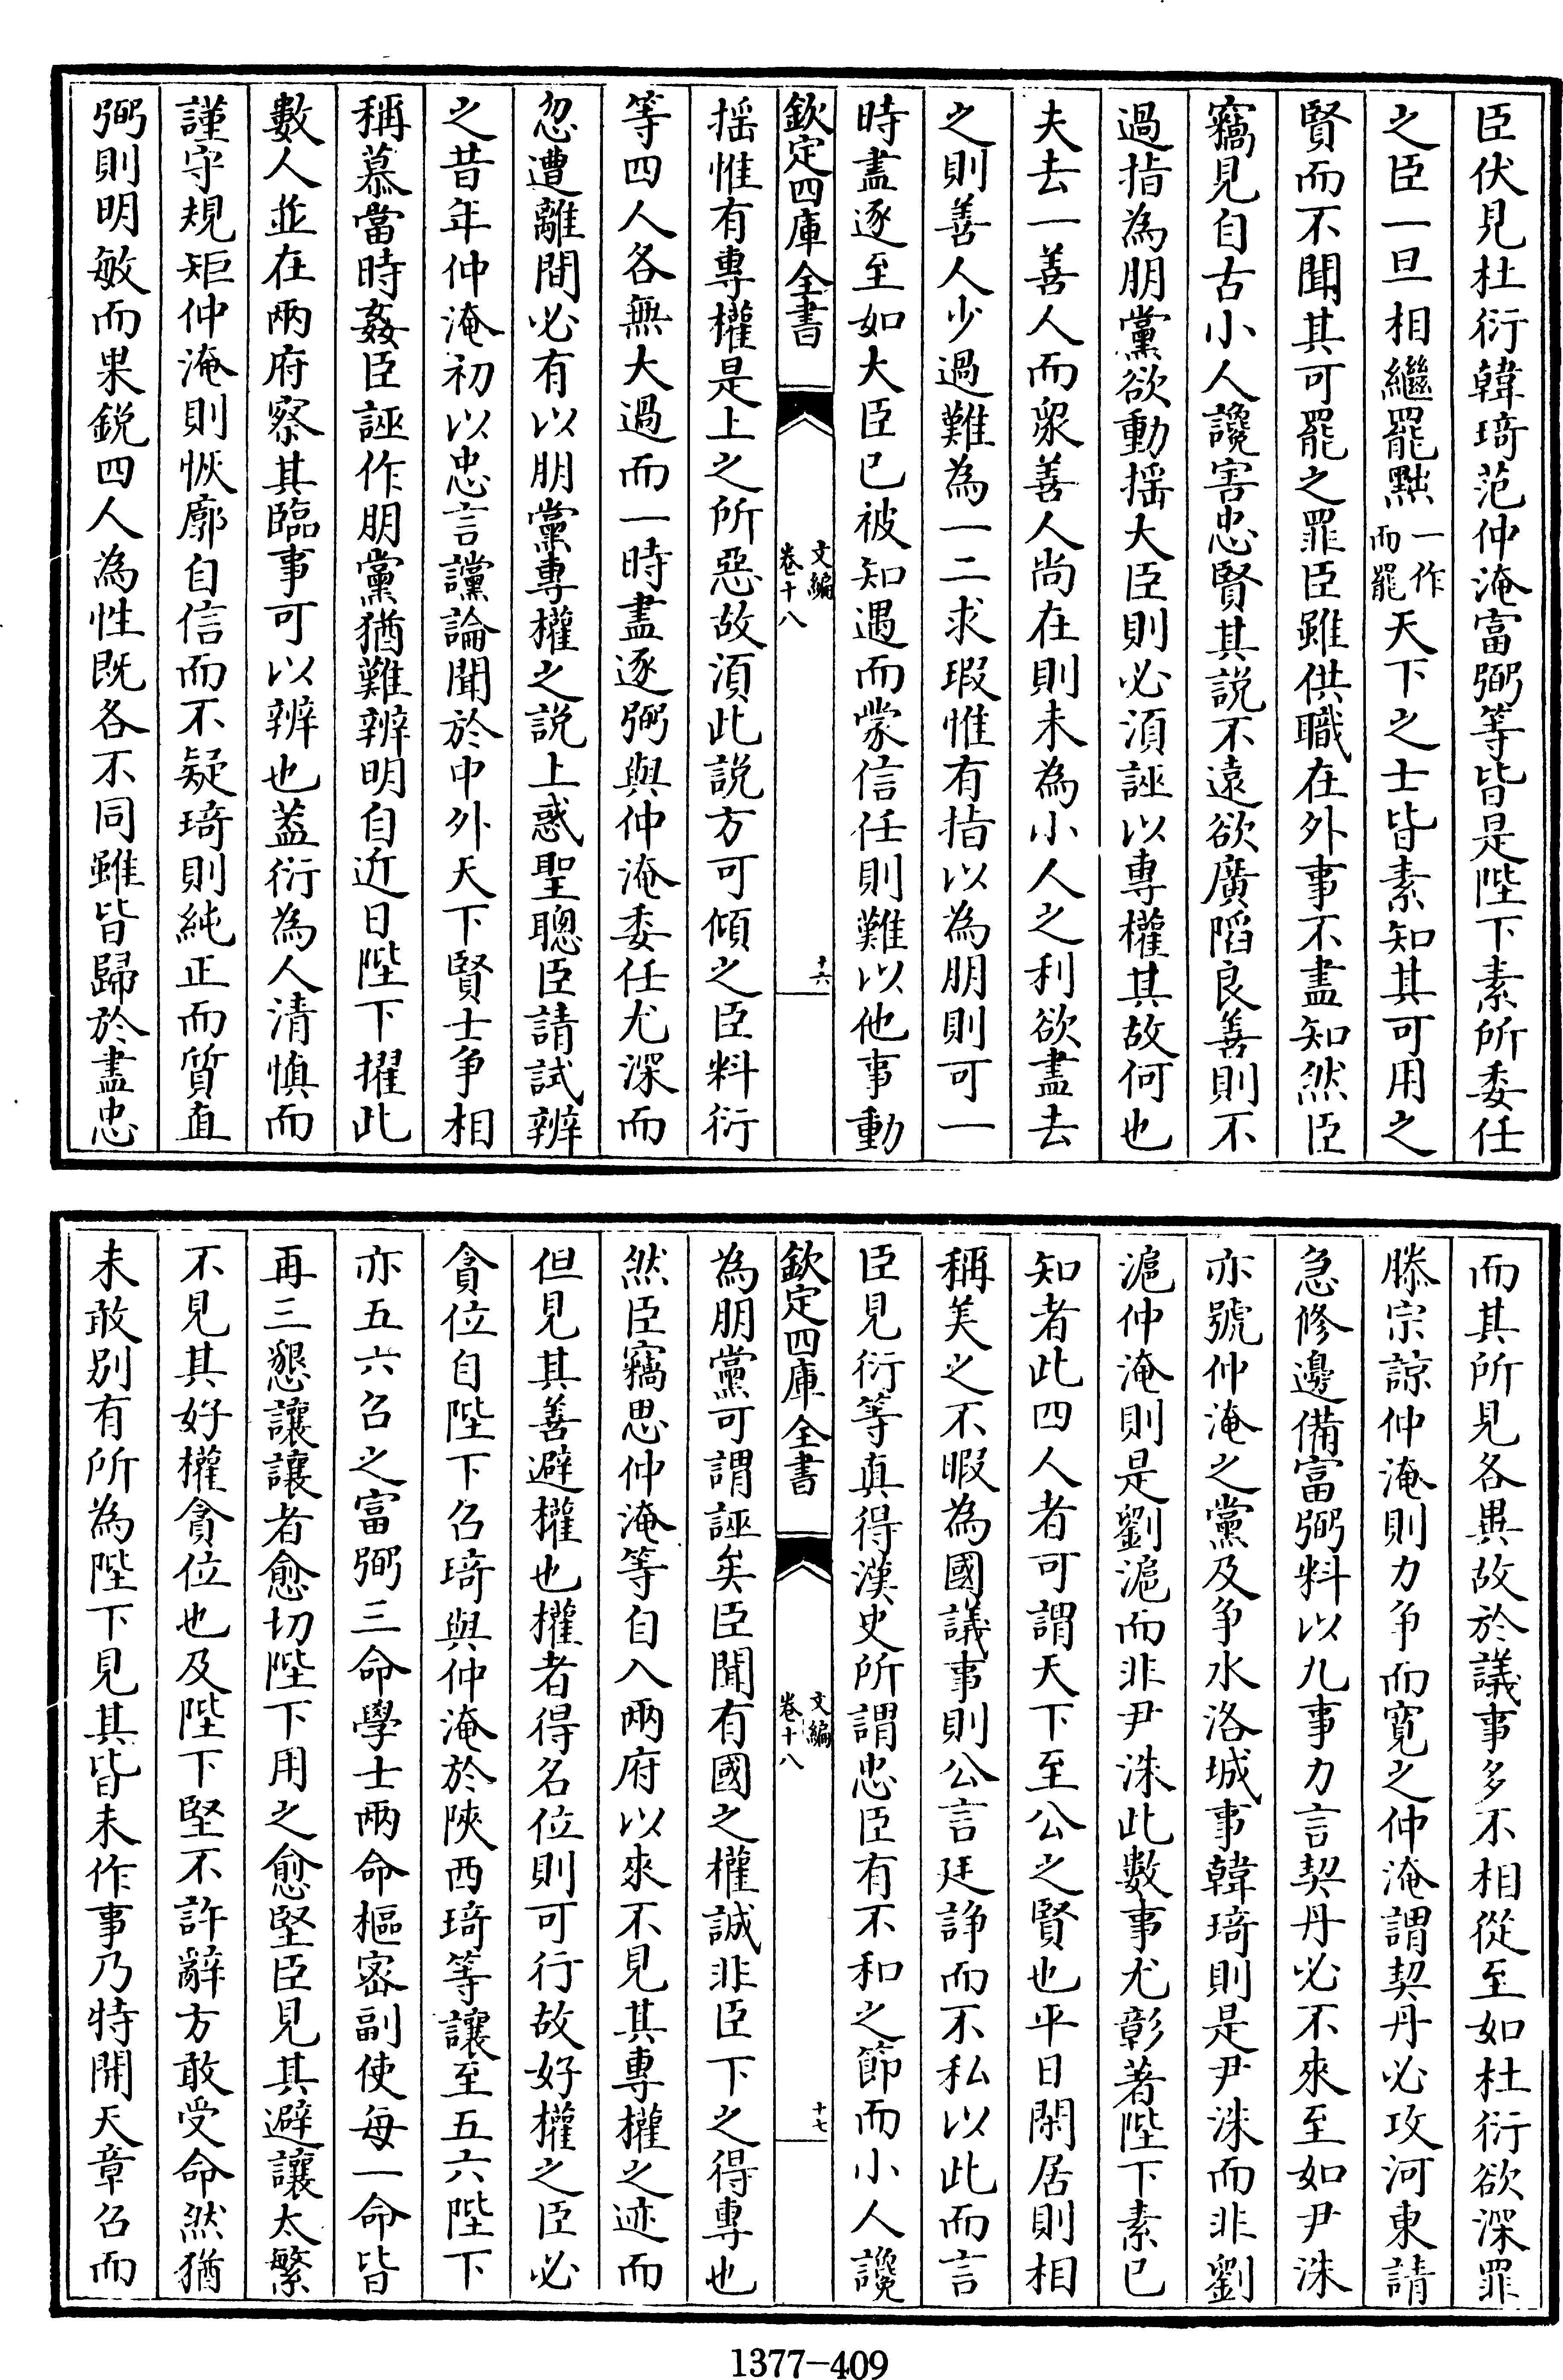 臣伏見杜衍韓琦范仲淹富弼等皆是陛下素所委任
之臣一旦相繼罷黜一作而罷天下之士皆素知其可用之
賢而不聞其可罷之罪臣雖供職在外事不盡知然臣
竊見自古小人讒害忠賢其説不遠欲廣陷良善則不
過指為朋黨欲動揺大臣則必須誣以專權其故何也
夫去一善人而衆善人尚在則未為小人之利欲盡去
之則善人少過難為一二求瑕惟有指以為朋則可一
時盡逐至如大臣已被知遇而蒙信任則難以他事動
欽定四庫全書
文編
卷十八
十六
揺惟有專權是上之所惡故須此説方可傾之臣料衍
等四人各無大過而一時盡逐弼與仲淹委任尤深而
忽遭離間必有以朋黨專權之説上惑聖聰臣請試辨
之昔年仲淹初以忠言讜論聞於中外天下賢士争相
稱慕當時姦臣誣作朋黨猶難辨明自近日陛下擢此
數人並在兩府察其臨事可以辨也葢衍為人清慎而
謹守規矩仲淹則恢廓自信而不疑琦則純正而質直
弼則明敏而果鋭四人為性既各不同雖皆歸於盡忠
而其所見各異故於議事多不相從至如杜衍欲深罪
滕宗諒仲淹則力争而寛之仲淹謂契丹必攻河東請
急修邊備富弼料以九事力言契丹必不來至如尹洙
亦號仲淹之黨及争水洛城事韓琦則是尹洙而非劉
滬仲淹則是劉滬而非尹洙此數事尤彰著陛下素已
知者此四人者可謂天下至公之賢也平日閑居則相
稱美之不暇為國議事則公言廷諍而不私以此而言
臣見衍等真得漢史所謂忠臣有不和之節而小人讒
欽定四庫全書
文編
卷十八
十七
為朋黨可謂誣矣臣聞有國之權誠非臣下之得專也
然臣竊思仲淹等自入兩府以來不見其專權之迹而
但見其善避權也權者得名位則可行故好權之臣必
貪位自陛下召琦與仲淹於陜西琦等讓至五六陛下
亦五六召之富弼三命學士兩命樞密副使每一命皆
再三懇讓讓者愈切陛下用之愈堅臣見其避讓太繁
不見其好權貪位也及陛下堅不許辭方敢受命然猶
未敢别有所為陛下見其皆未作事乃特開天章召而
1377-409